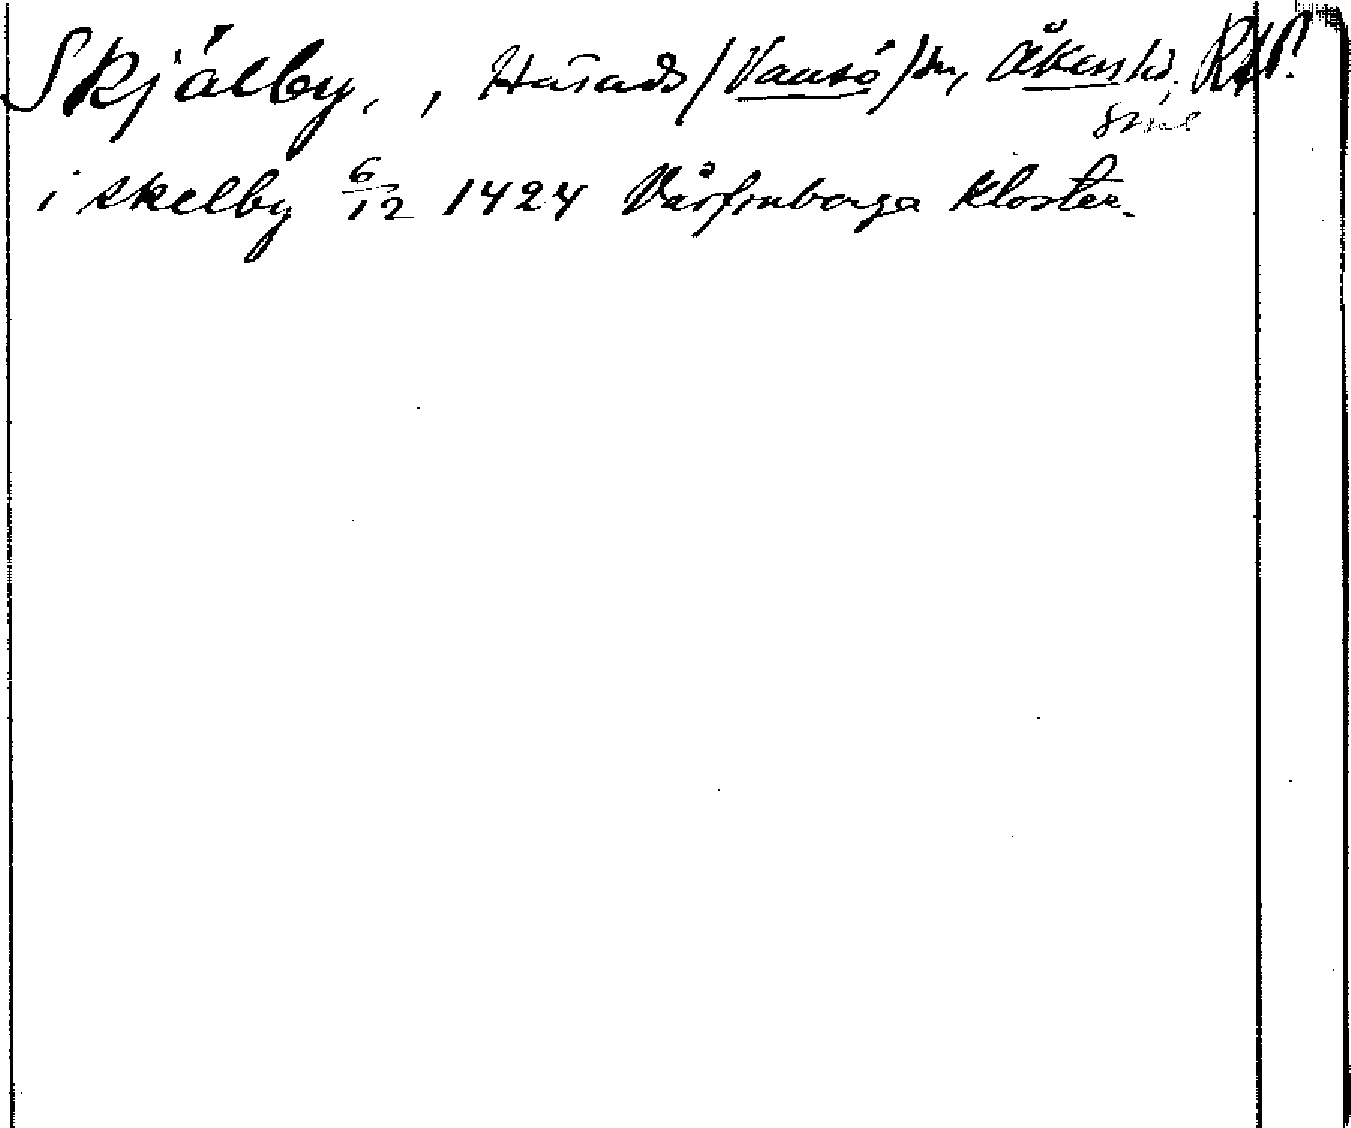 Skjälby, , Härads/Vansö/sn, Åkers hd,
Sml
i skelby 6/12 1424 Vårfruberga Kloster.